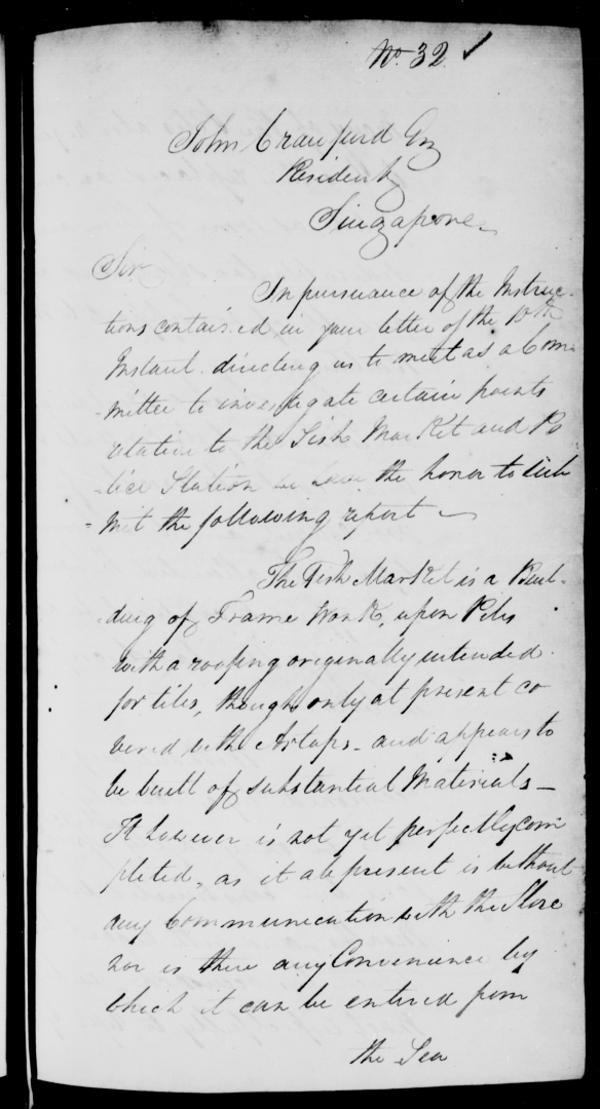 No. 32 ✓
John Crawfurd Esq
Resident
Singapore
Sir
In pursuance of the Instruc-
tions contained in your letter of the 10th
Instant directing us to meet as a Com-
-mittee to investigate certain points
relative to the Fish Market and Po
-lice Station we have the honor to sub
-mit the following report
The Fish Market is a Buil-
-ding of Frame Work, upon Piles
with a roofing originally intended
for tiles, though only at present co
vered with Artaps - and appears to
be built of substantial Materials -
It however is not yet perfectly com
pleted, as it at present is without
any Communication with the Shore
nor is there any Convenience by
which it can be entered from
the Sea